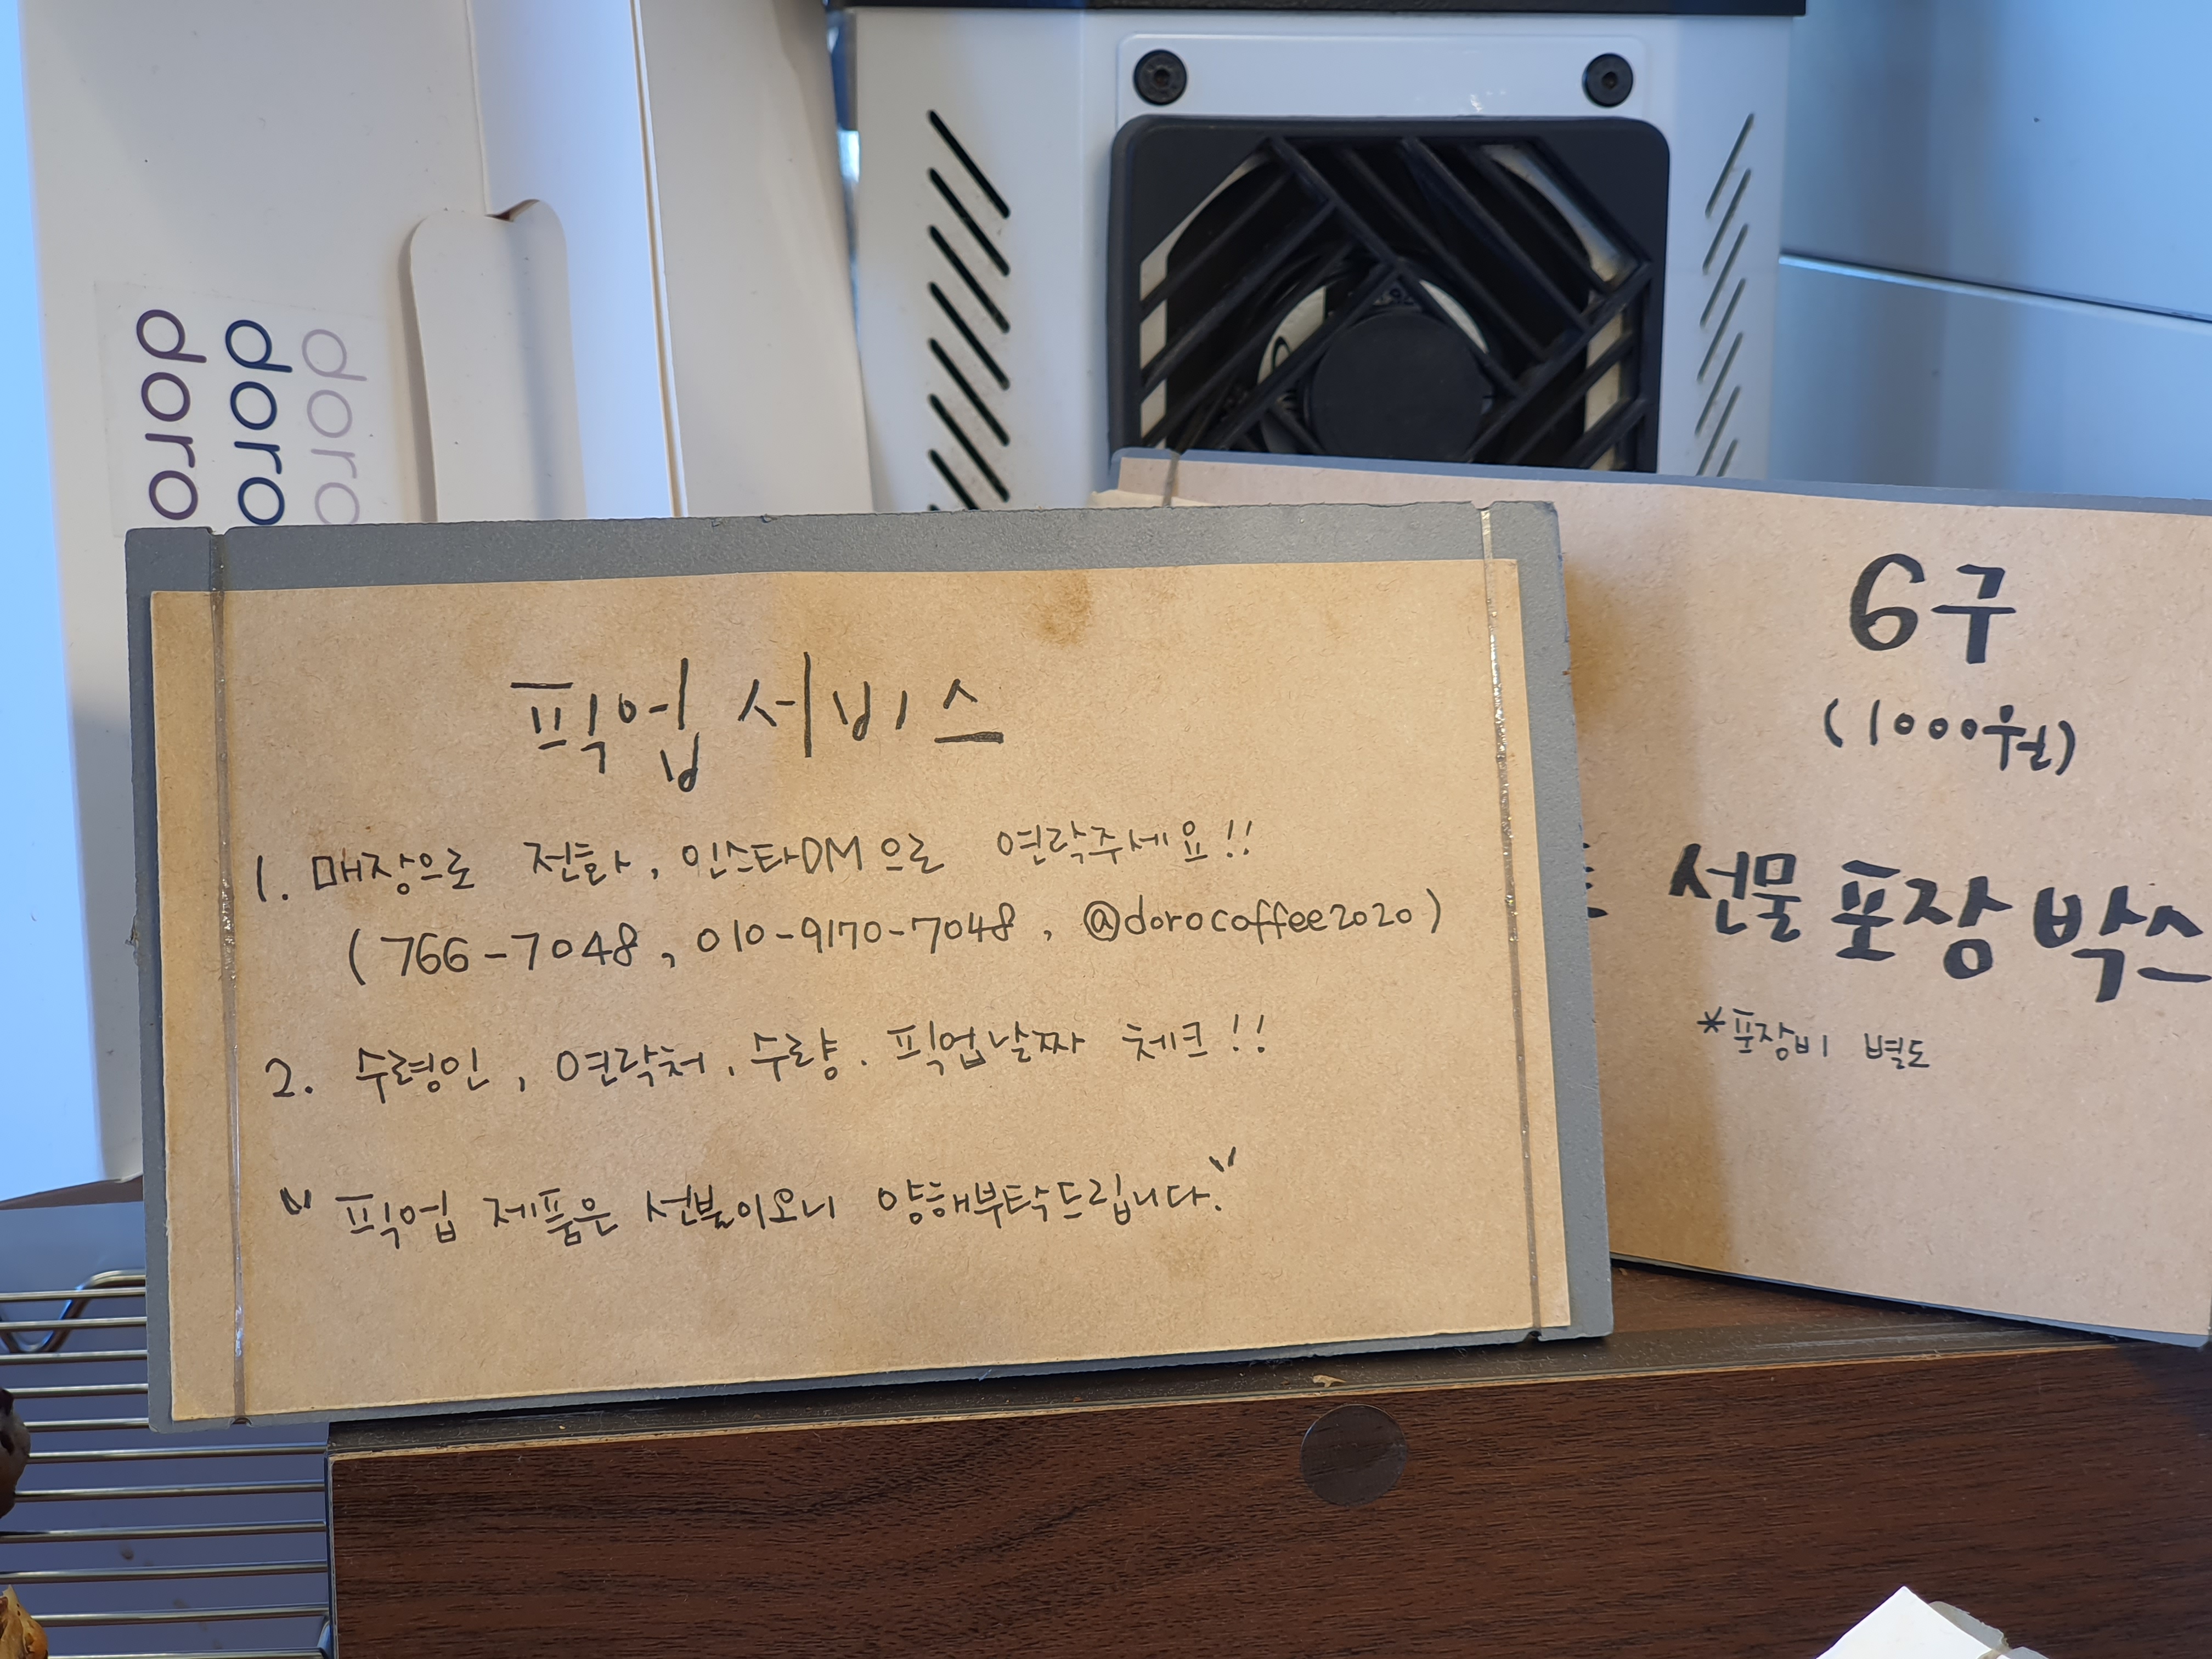 doro
doro
doro
픽업 서비스
1. 매장으로 전화, 인스타DM으로 연락주세요!!
(766-7048, 010-9170-7048, @dorocoffee2020)
2. 수령인, 연락처, 수량, 픽업날짜 체크!!
"픽업 제품은 선불이오니 양해부탁드립니다."
6구
(1000원)
선물 포장 박스
*포장비 별도